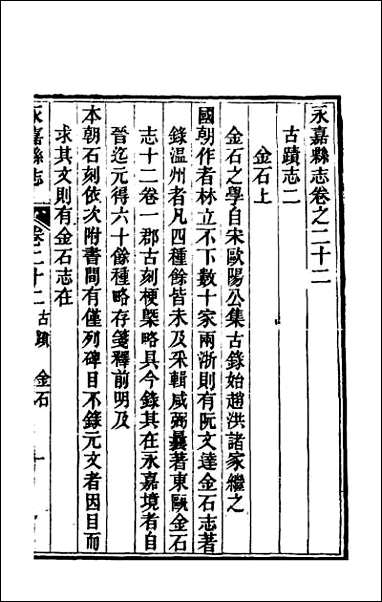 永嘉縣志卷之二十二
古蹟志二
金石上
金石之學自宋歐陽公集古錄始趙洪諸家繼之
國朝作者林立不下數十家兩浙則有阮文達金石志著
錄溫州者凡四種餘皆未及釆輯咸弼曩著東甌金石
志十二卷一郡古刻梗槩略具今錄其在永嘉境者自
晉迄元得六十餘種略存箋釋前明及
本朝石刻依次附書間有僅列碑目不錄元文者因目而
求其文則有金石志在
永嘉縣志 卷二十二 古蹟 金石 一